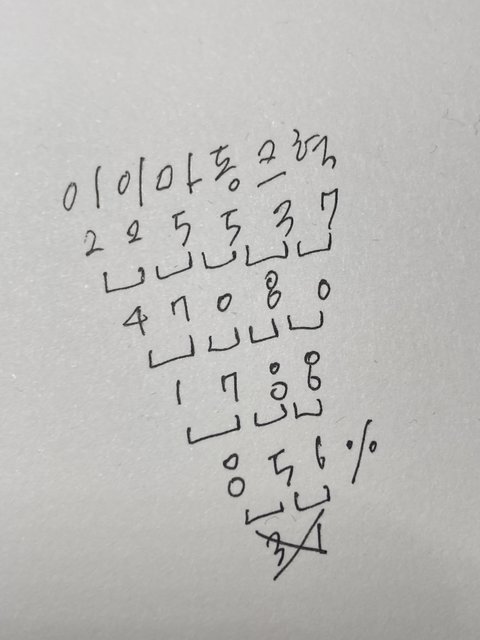 이이마동크혁
2 2 5 5 3 7
4 7 0 8 0
1 7 8 8
8 5 6 %
3 1